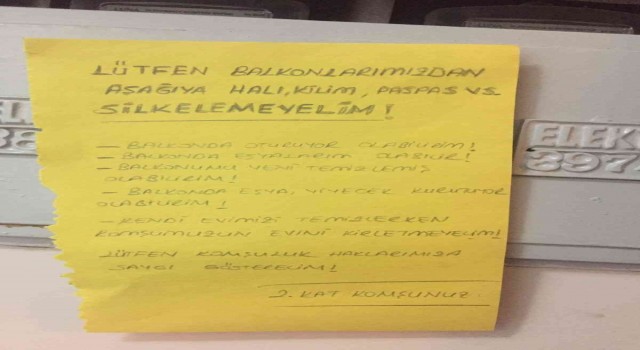 LÜTFEN BALKONLARIMIZDAN
AŞAĞIYA HALI, KİLİM, PASPAS VS.
SİLKELEMEYELİM!
– BALKONDA OTURUYOR OLABİLİRİM!
– BALKONDA EŞYALARIM OLABİLİR!
– BALKONUMU YENİ TEMİZLEMİŞ
OLABİLİRİM!
– BALKONDA EŞYA, YİYECEK KURUTUYOR
OLABİLİRİM!
– KENDİ EVİMİZİ TEMİZLERKEN
KOMŞUMUZUN EVİNİ KİRLETMEYELİM!
LÜTFEN KOMŞULUK HAKLARIMIZA
SAYGI GÖSTERELİM!
2. KAT KOMŞUNUZ
ELEK
397